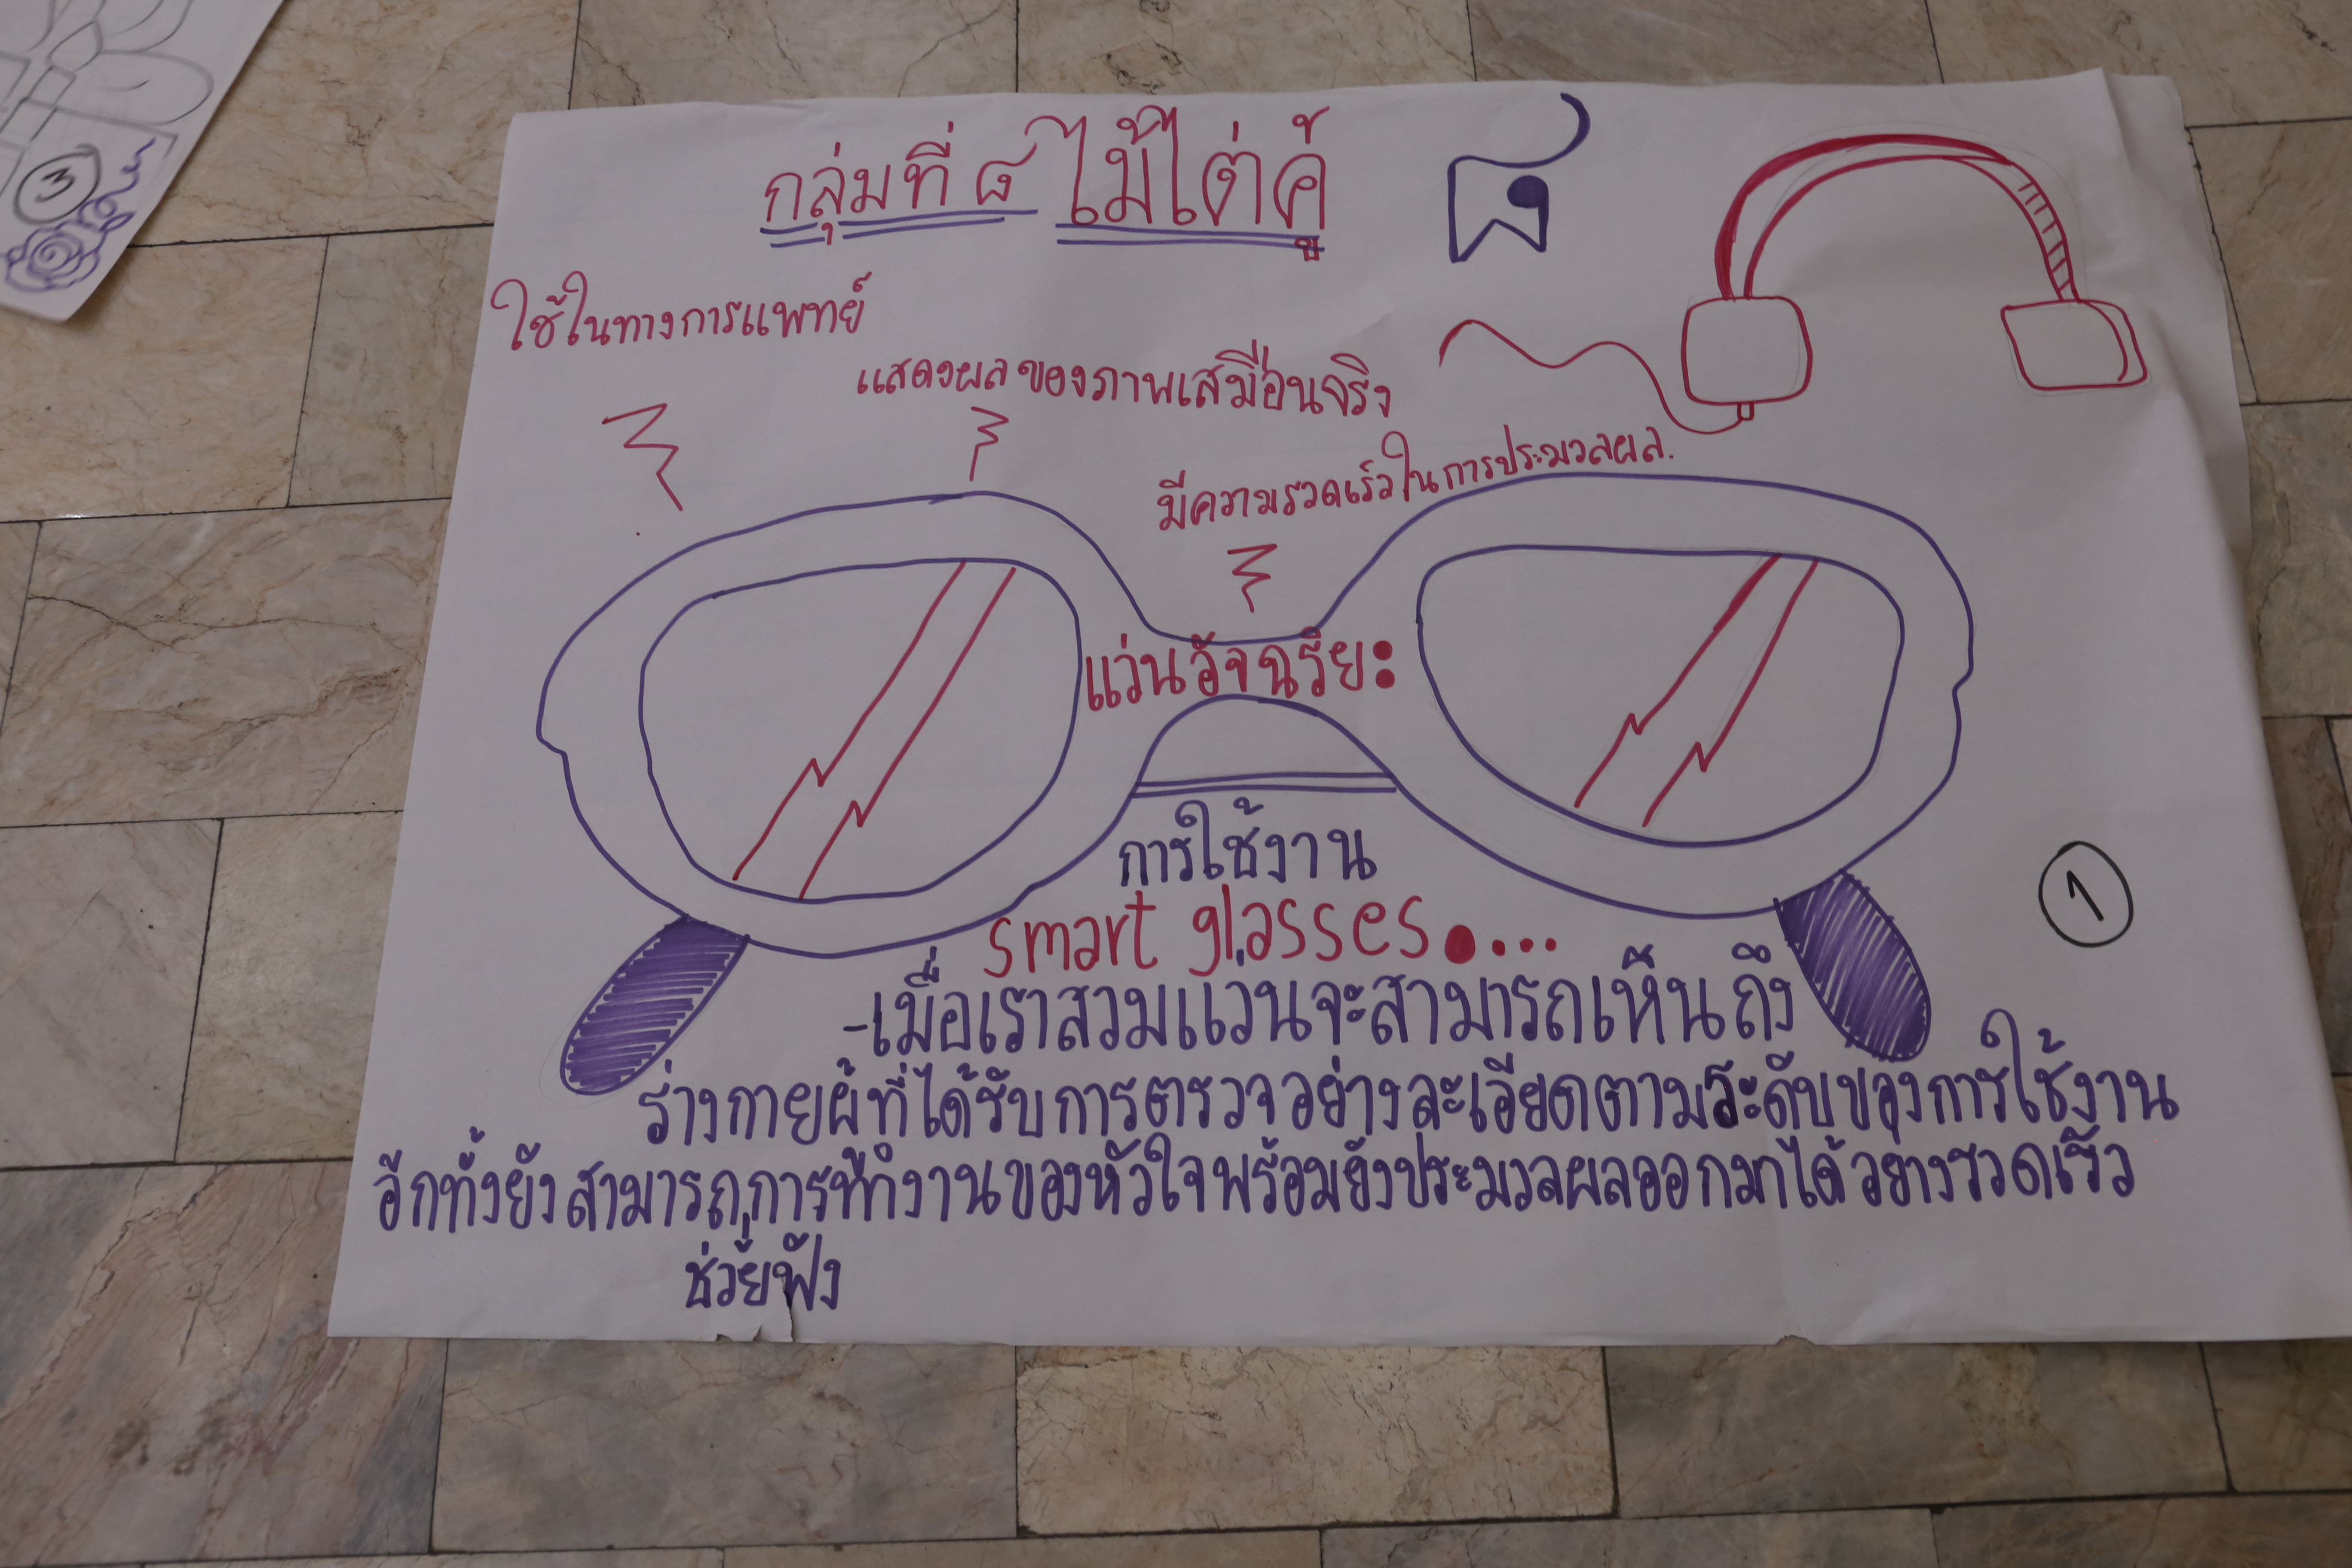 กลุ่มที่ ๘ ไม้ไต่คู้
๘
ใช้ในทางการแพทย์
แสดงผลของภาพเสมือนจริง
มีความรวดเร็วในการประมวลผล.
แว่นอัจฉริยะ
การใช้งาน
smart glasses....
1
-เมื่อเราสวมแว่นจะสามารถเห็นถึง
ร่างกายผู้ที่ได้รับการตรวจอย่างละเอียดตามระดับของการใช้งาน
อีกทั้งยังสามารถการทำงานของหัวใจพร้อมยังประมวลผลออกมาได้อย่างรวดเร็ว
ช่วยฟัง
3